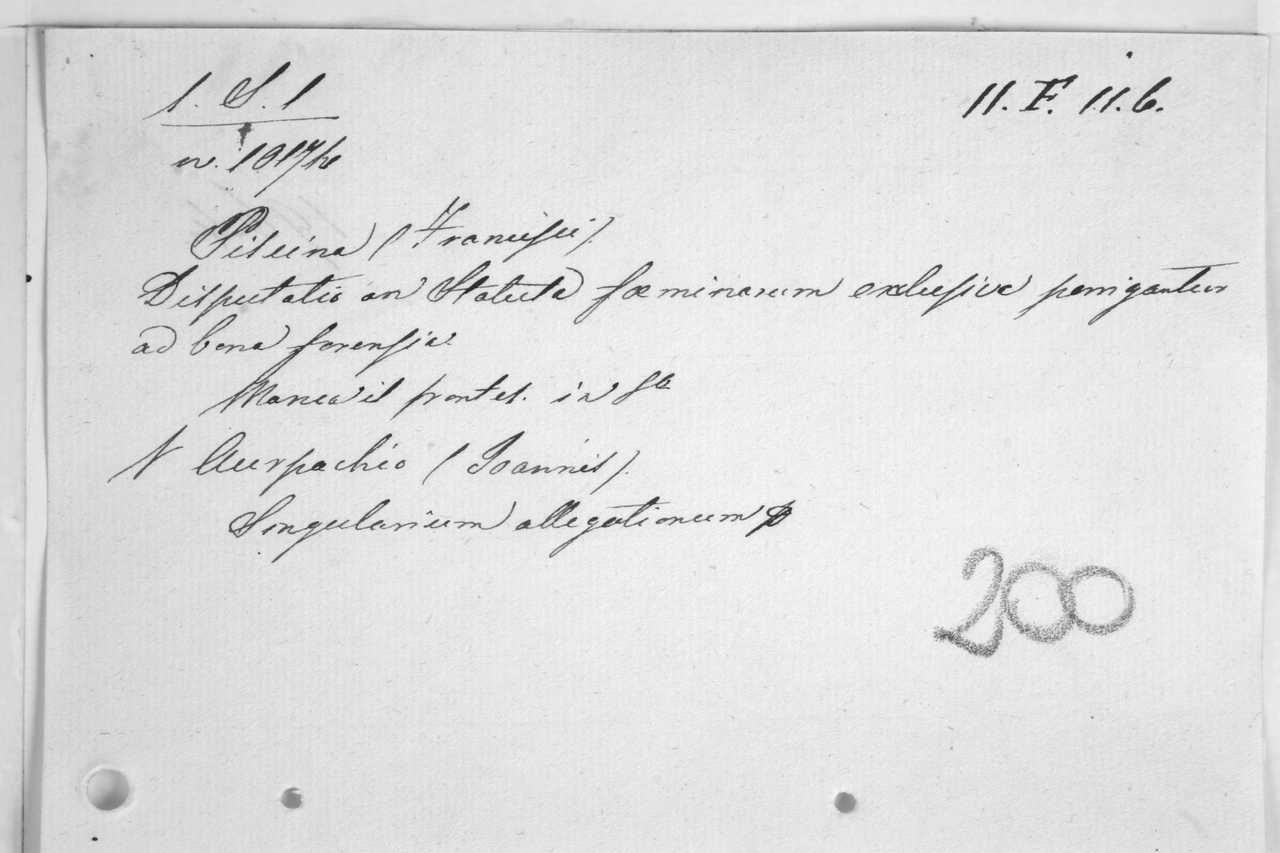 1. S. 1
11. F. 11.6.
Piscina (Francisci).
Disputatio an Statuta fœminarum exclusiva porrigantur
ad bona forensia
Manca il frontes. in f.o
N Aurpachio (Joannis).
Singularium allegationum
200